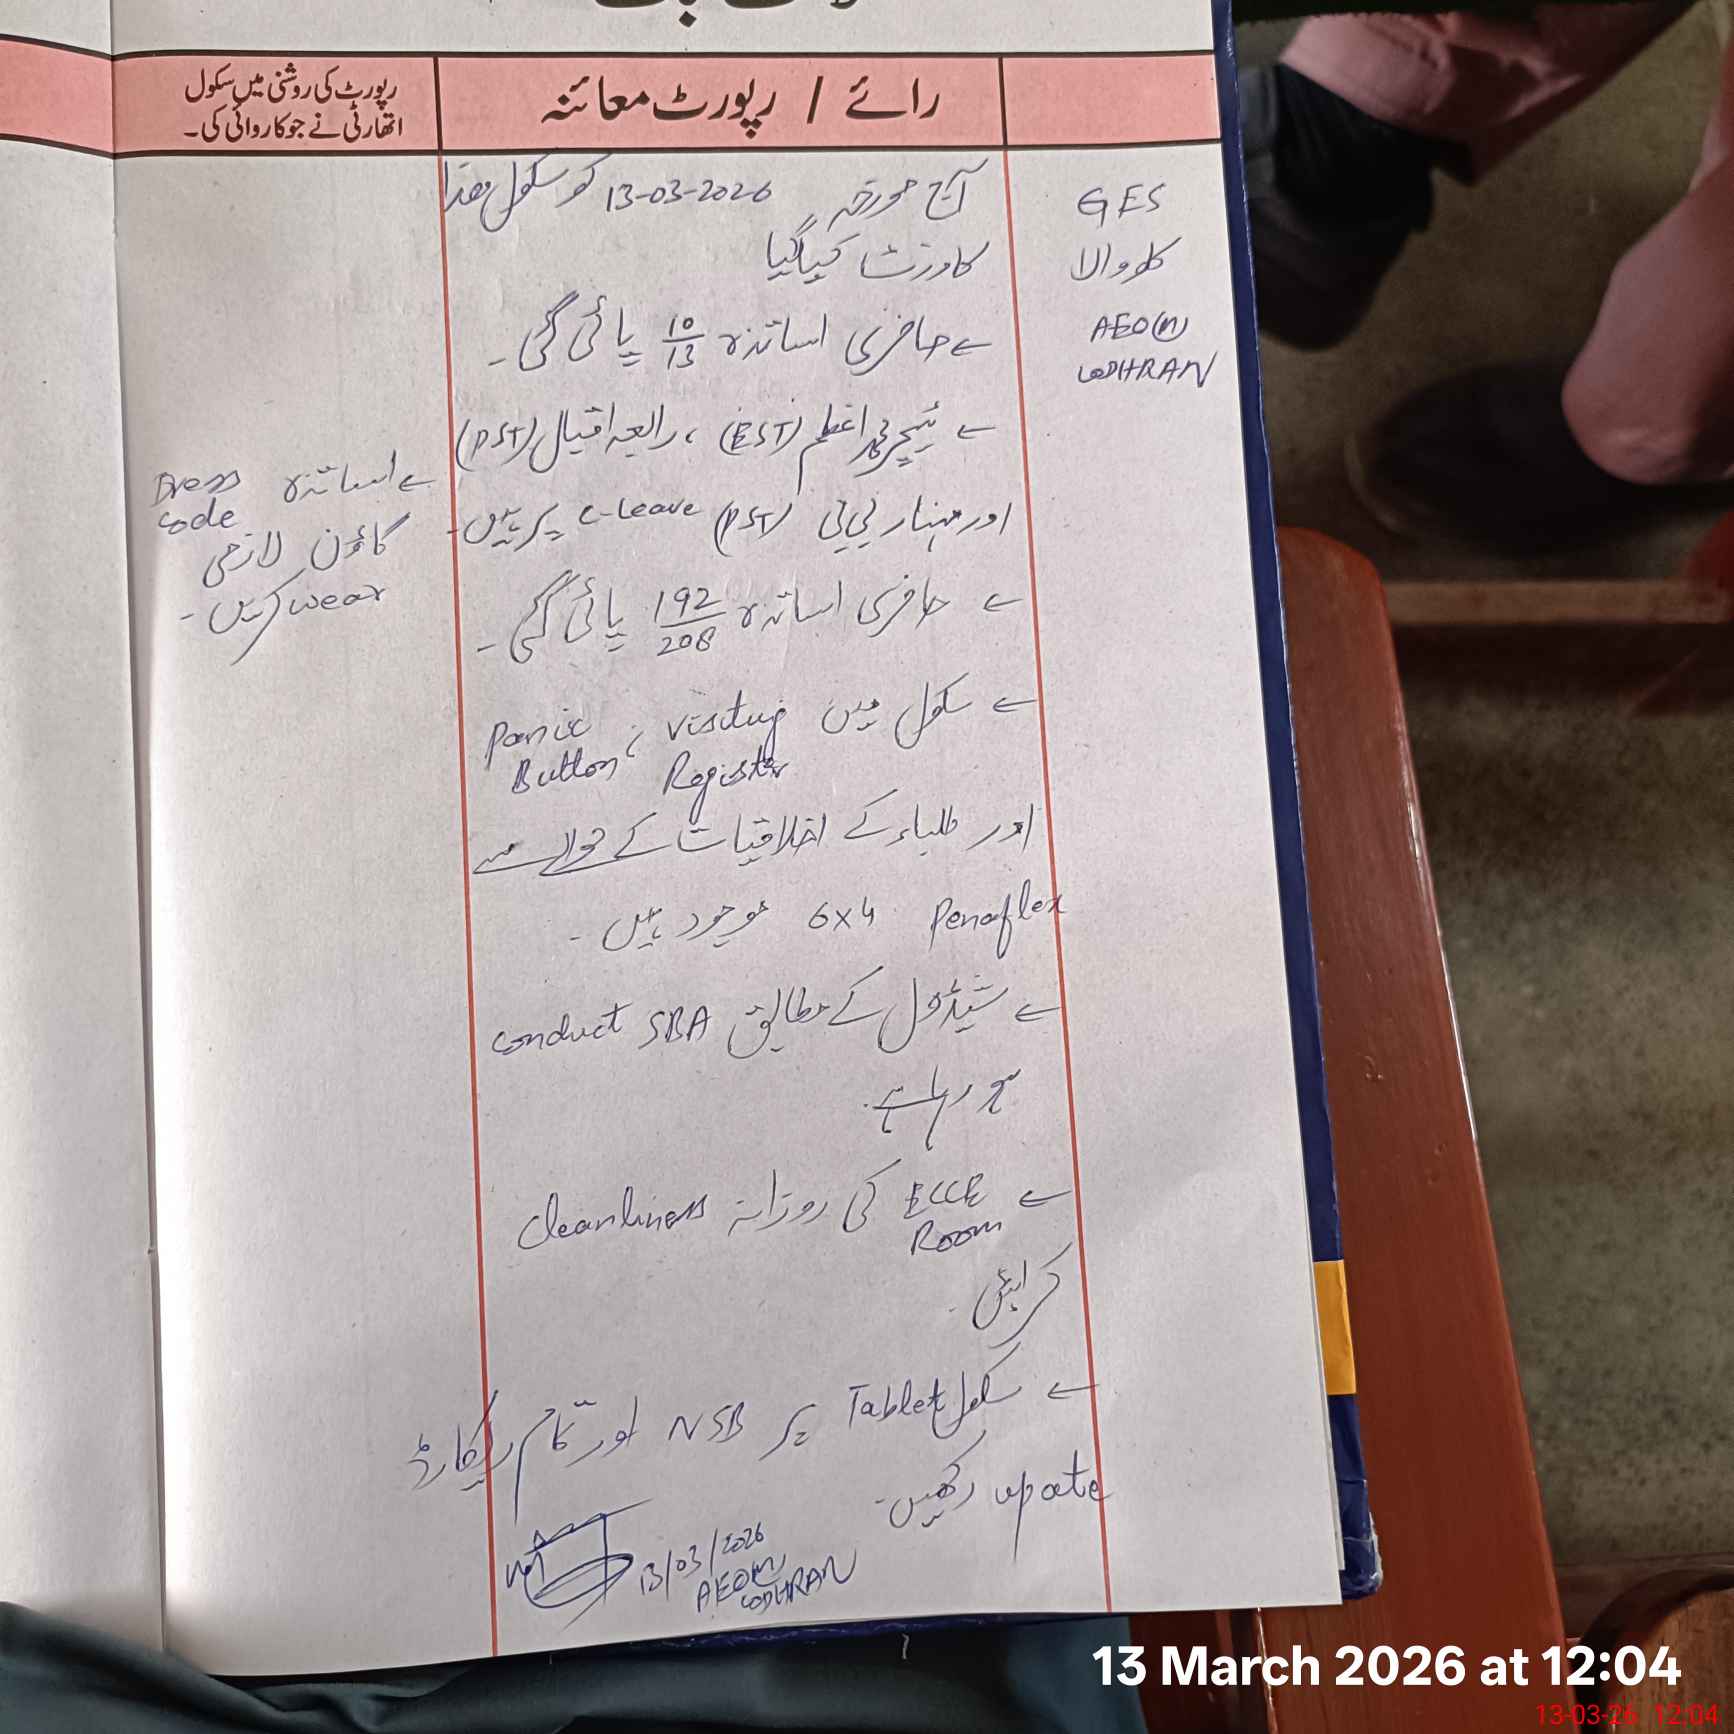 رائے / رپورٹ معائنہ
رپورٹ کی روشنی میں سکول
اتھارٹی نے جو کاروائی کی۔
GES
والا
AEO(M)
LODHRAN
آج مورخہ 13-03-2026 کو سکول ھذا
کا وزٹ کیا گیا
حاضری اساتذہ 10/13 پائی گئی۔
ٹیچر محمد اعظم (EST)، رابعہ اقبال (PST)
اور مہناز بی بی (PST) C-Leave پر ہیں۔
حاضری اساتذہ 192/208 پائی گئی۔
سکول میں visiting Register ، Panic Button
اور طلباء کے اخلاقیات کے حوالے سے
Penaflex 6x4 موجود ہیں۔
شیڈول کے مطابق SBA conduct
ہو رہا ہے۔
ECCE Room کی روزانہ Cleanliness
کرائیں۔
سکول Tablet پر NSB اور تمام ریکارڈ
update رکھیں۔
13/03/2026
AEO(M)
LODHRAN
اساتذہ Dress code
گاؤن لازمی
wear کریں۔
13 March 2026 at 12:04
13-03-26 12:04